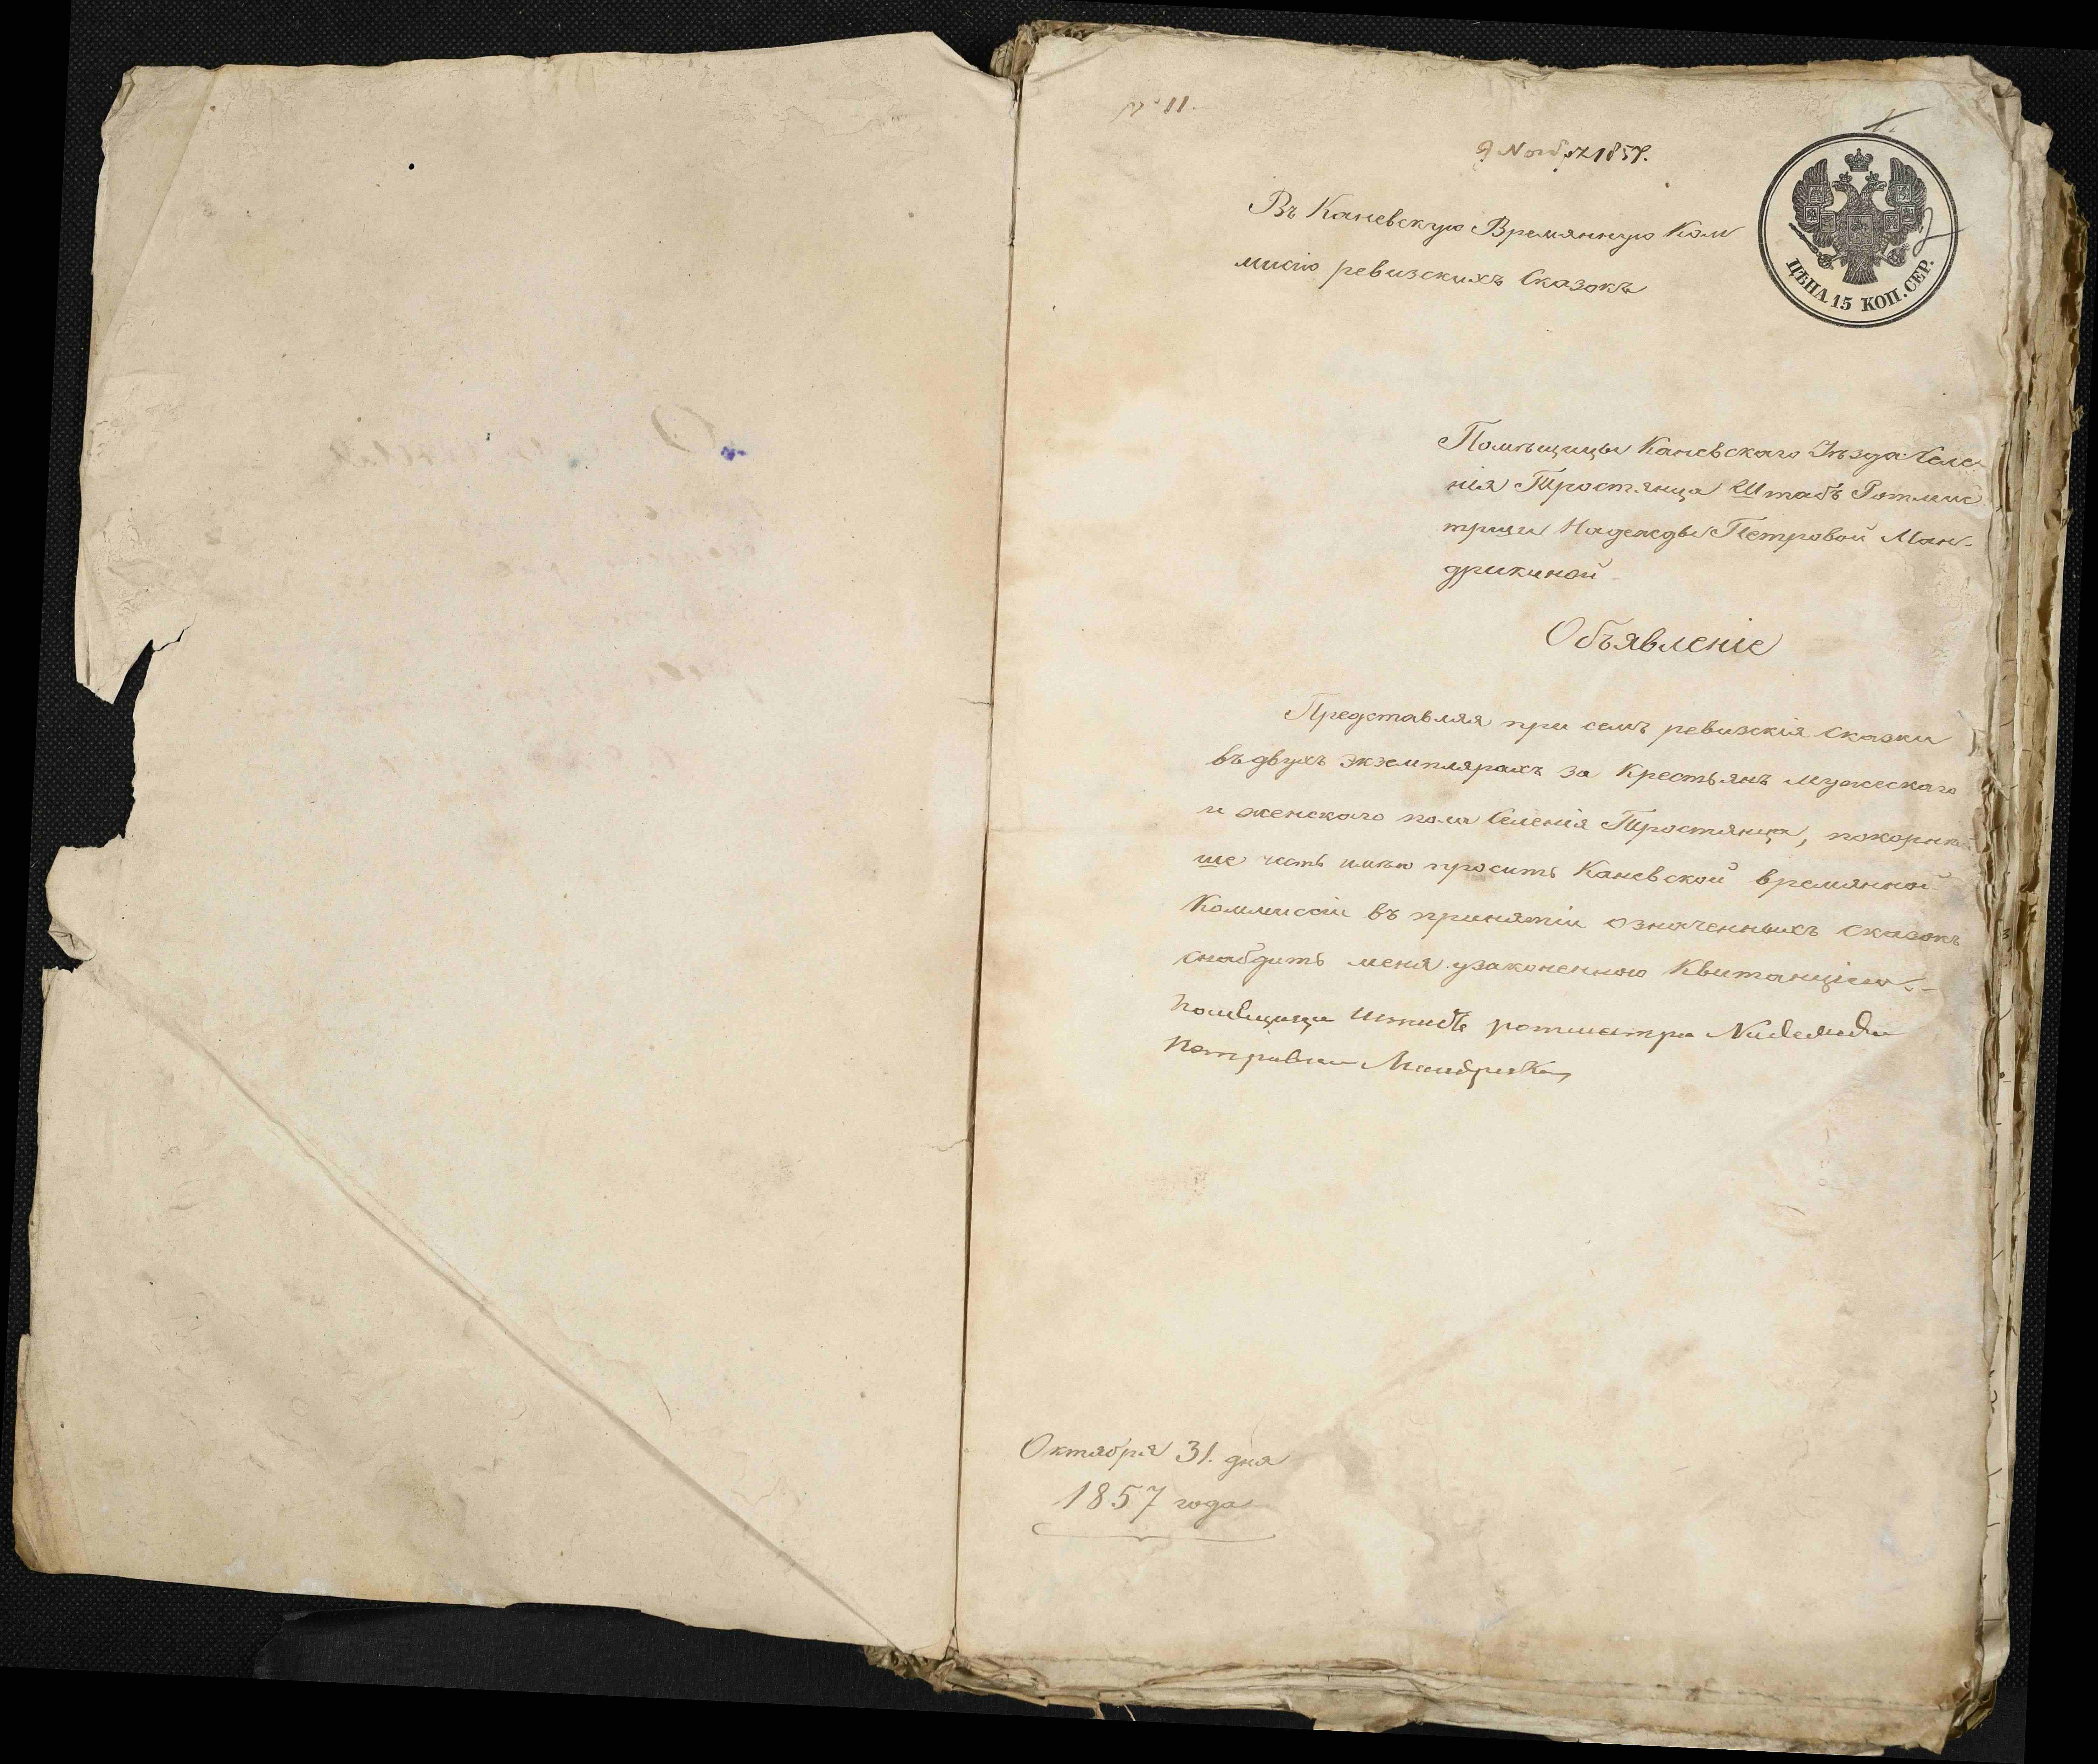 № 11.
9 Ноября 1857.
1.
ЦѢНА 15 КОП. СЕР.
Въ Каневскую Времянную Ком
мисію ревизскихъ Сказокъ
Помѣщицы Каневскаго Уѣзда Селе
нія Тростянца Штабъ Ротмис
трши Надежды Петровой Ман-
дрикиной
Объявленіе
Представляя при семъ ревизскія сказки
въ двухъ экземплярахъ за крестьянъ мужескаго
и женскаго пола Селенія Тростянца, покорнѣ
ше честь имѣю просить Каневской времянной
Коммисіи въ принятіи означенныхъ сказокъ
снабдить меня узаконенною Квитанціею.-
помещица штабъ ротмистра Надежда
Петровна Мандрика
Октября 31. дня
1857 года